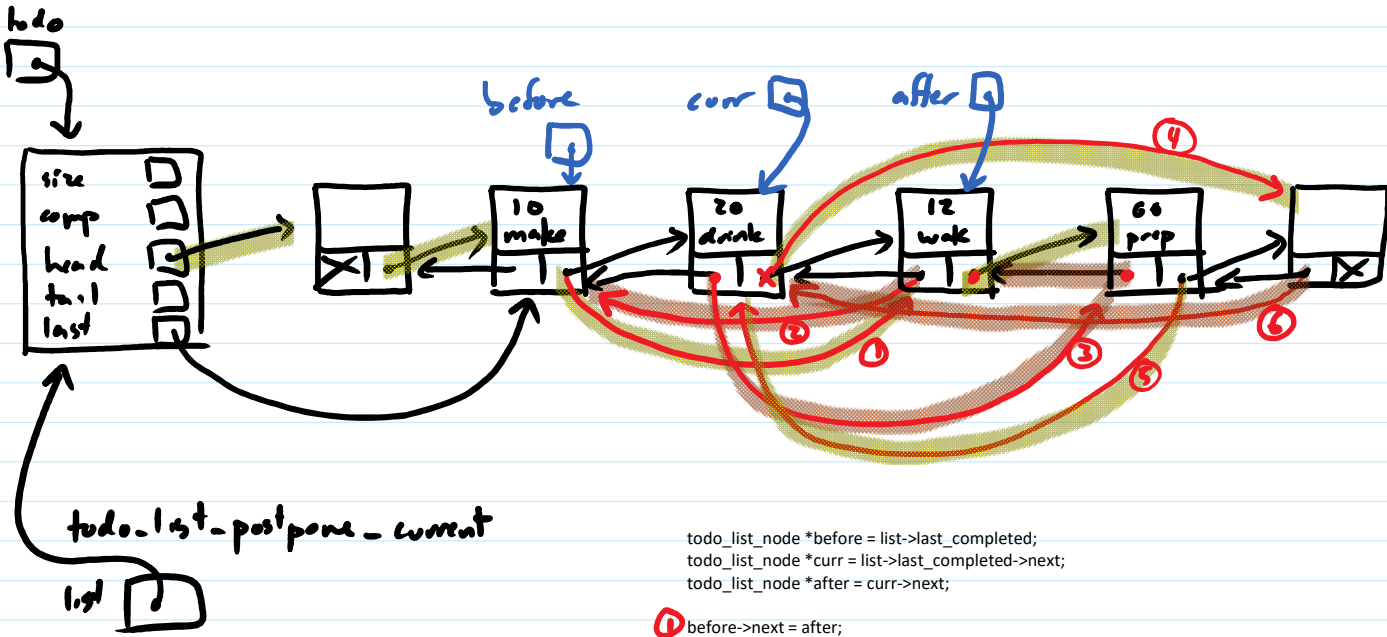 todo
before
curr
after
④
size
comp
head
tail
last
10
make
20
drink
12
wake
60
prep
②
①
③
⑤
⑥
todo_list_postpone_current
list
todo_list_node *before = list->last_completed;
todo_list_node *curr = list->last_completed->next;
todo_list_node *after = curr->next;
① before->next = after;